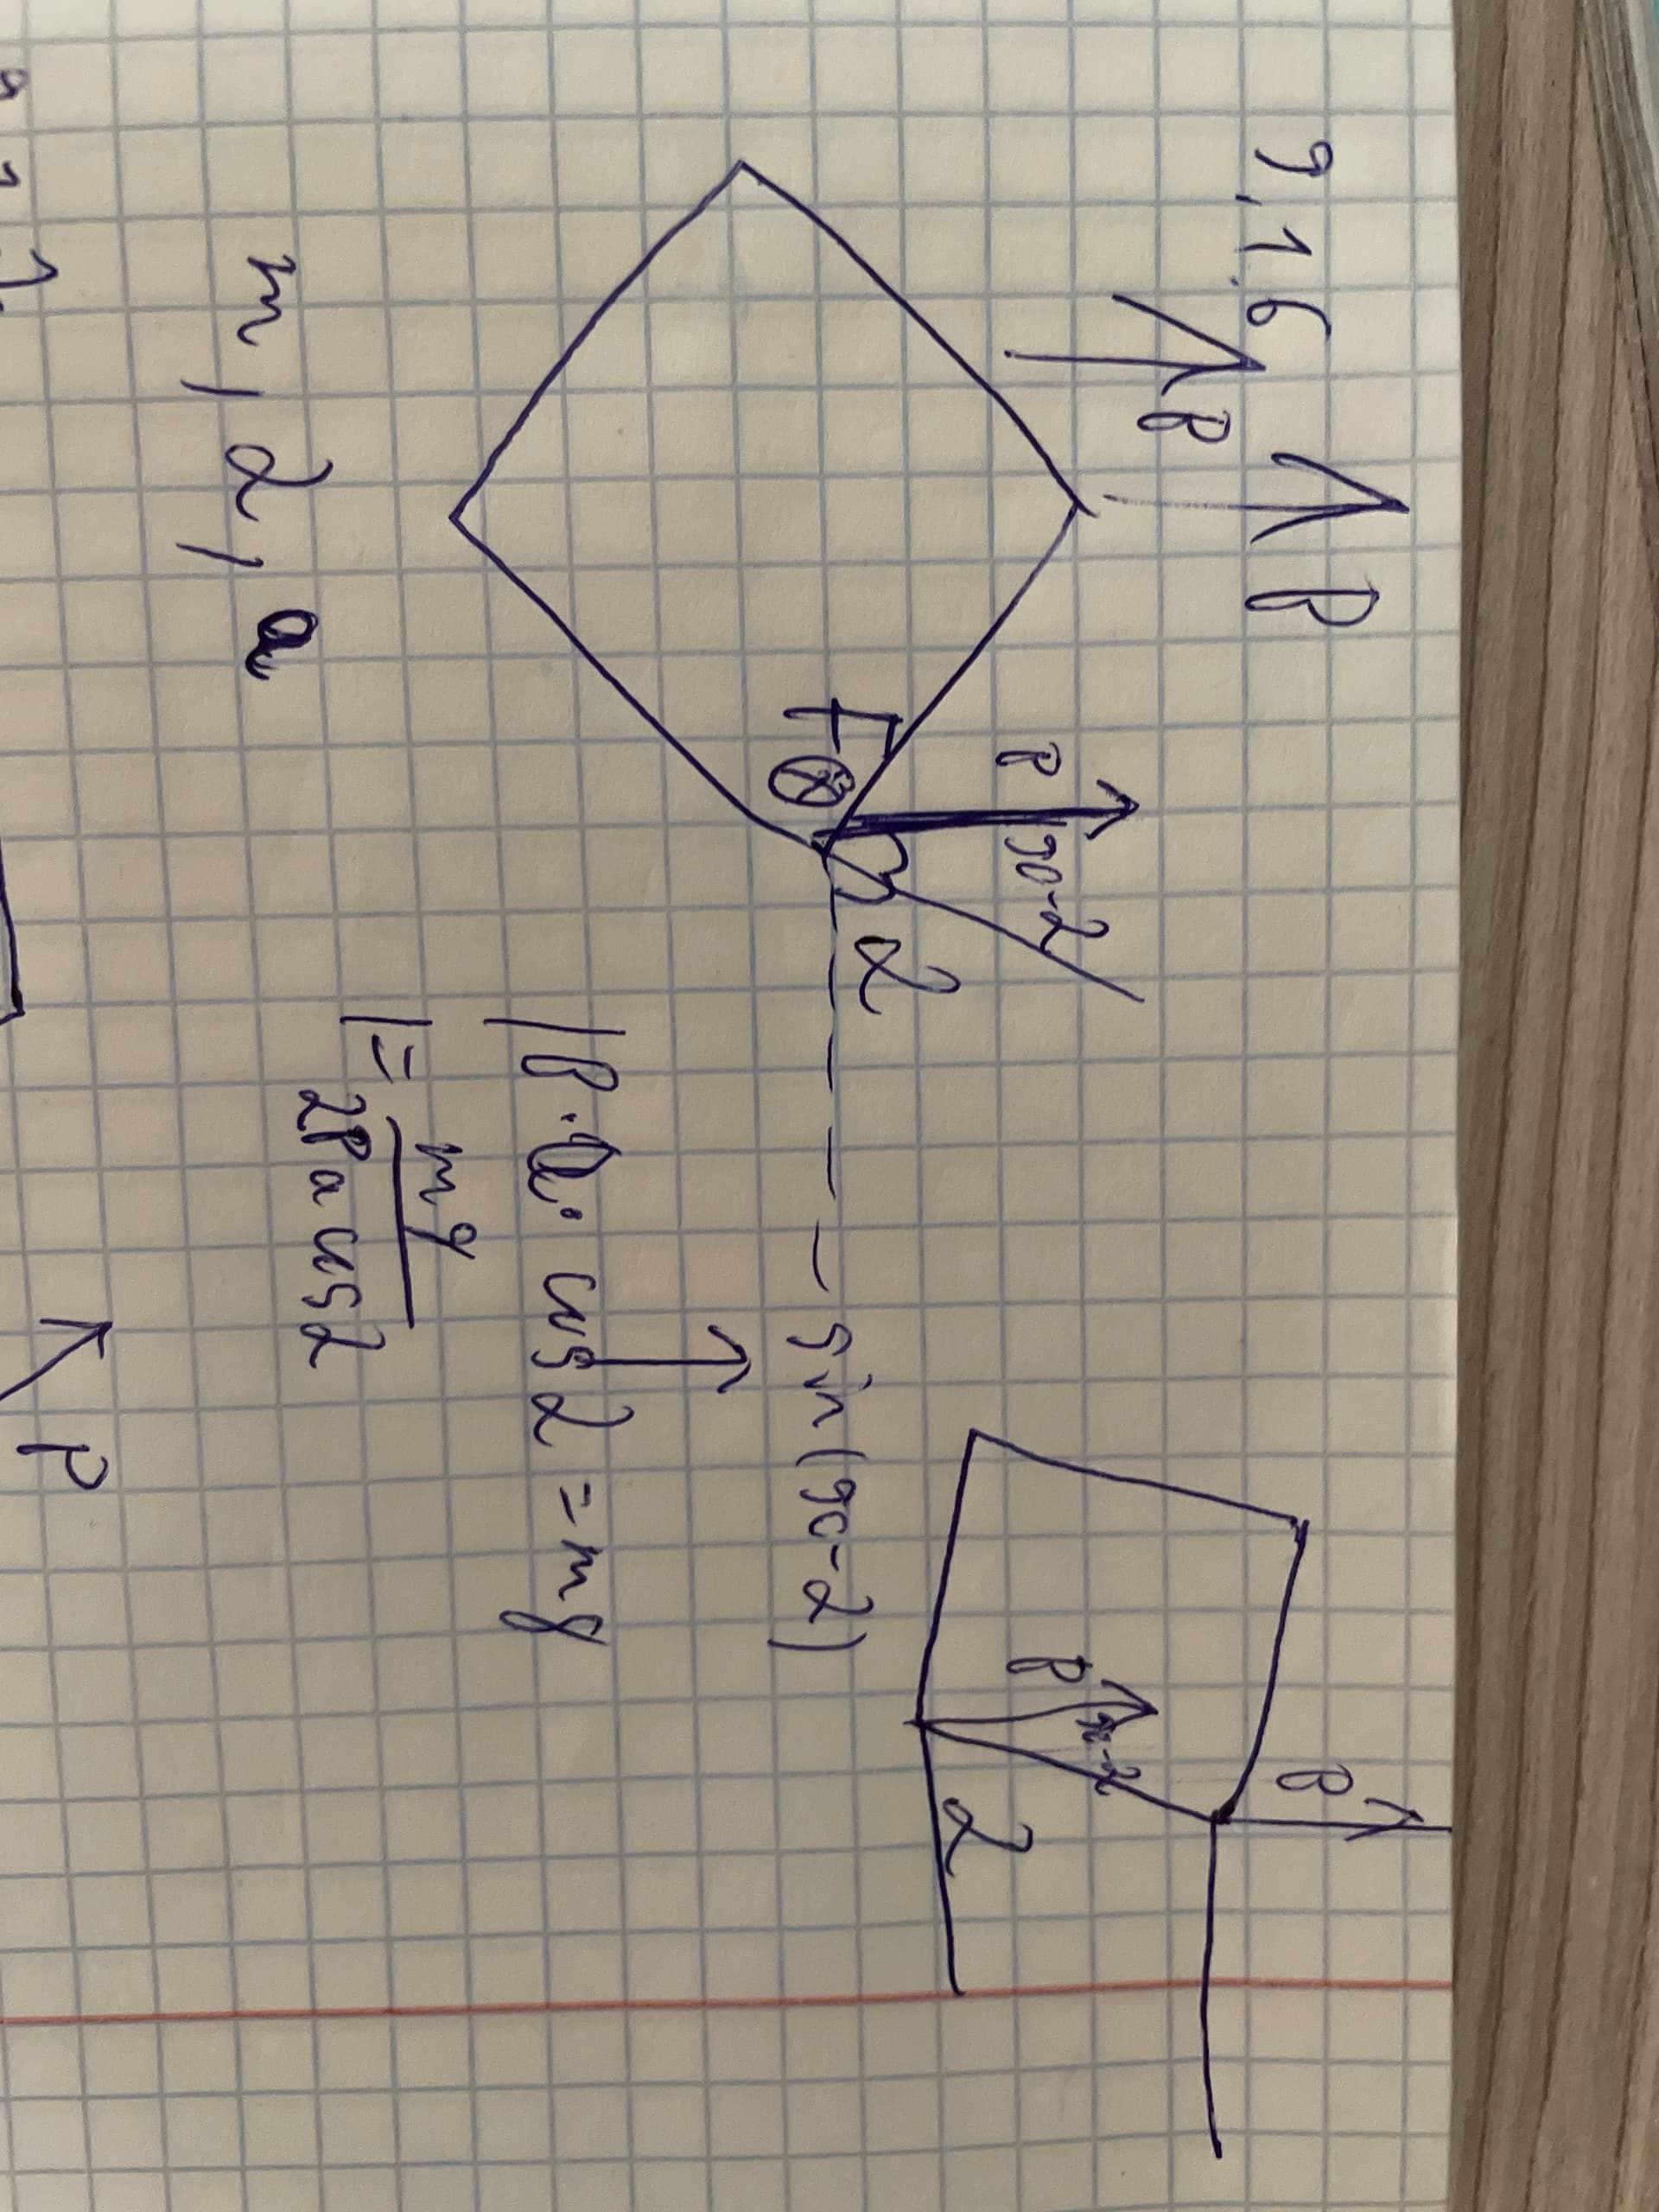 9.1.6
B
B
B
90-α
F
α
m, α, a
sin(90-α)
IB·a·cosα = mg
I = mg / 2Ba cosα
B
B
90-α
α